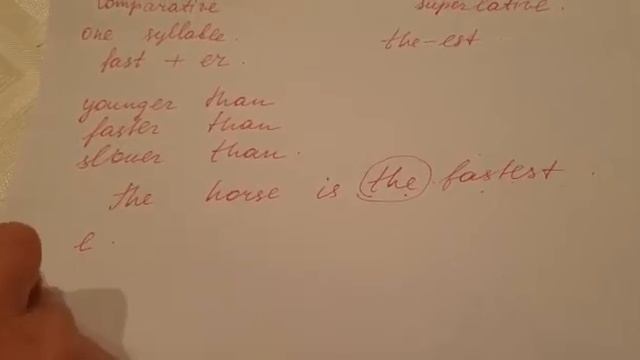 comparative superlative.
one syllable. the-est
fast + er.
younger than
faster than
slower than.
the horse is the fastest.
e.